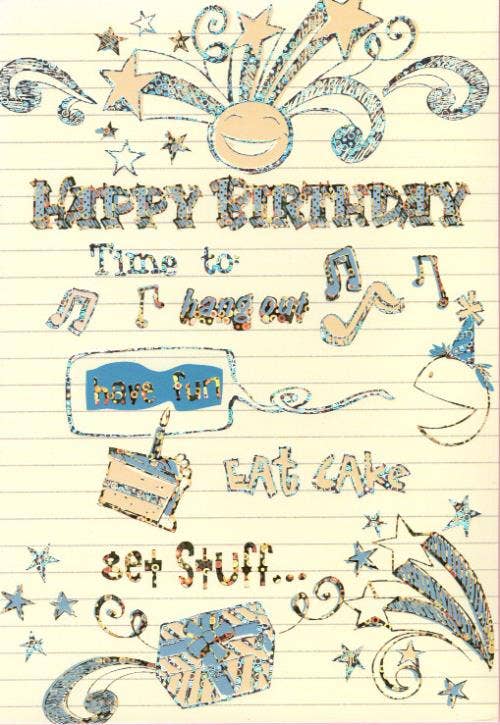 HAPPY BIRTHDAY
Time to
hang out
have fun
EAt CAKe
get Stuff...